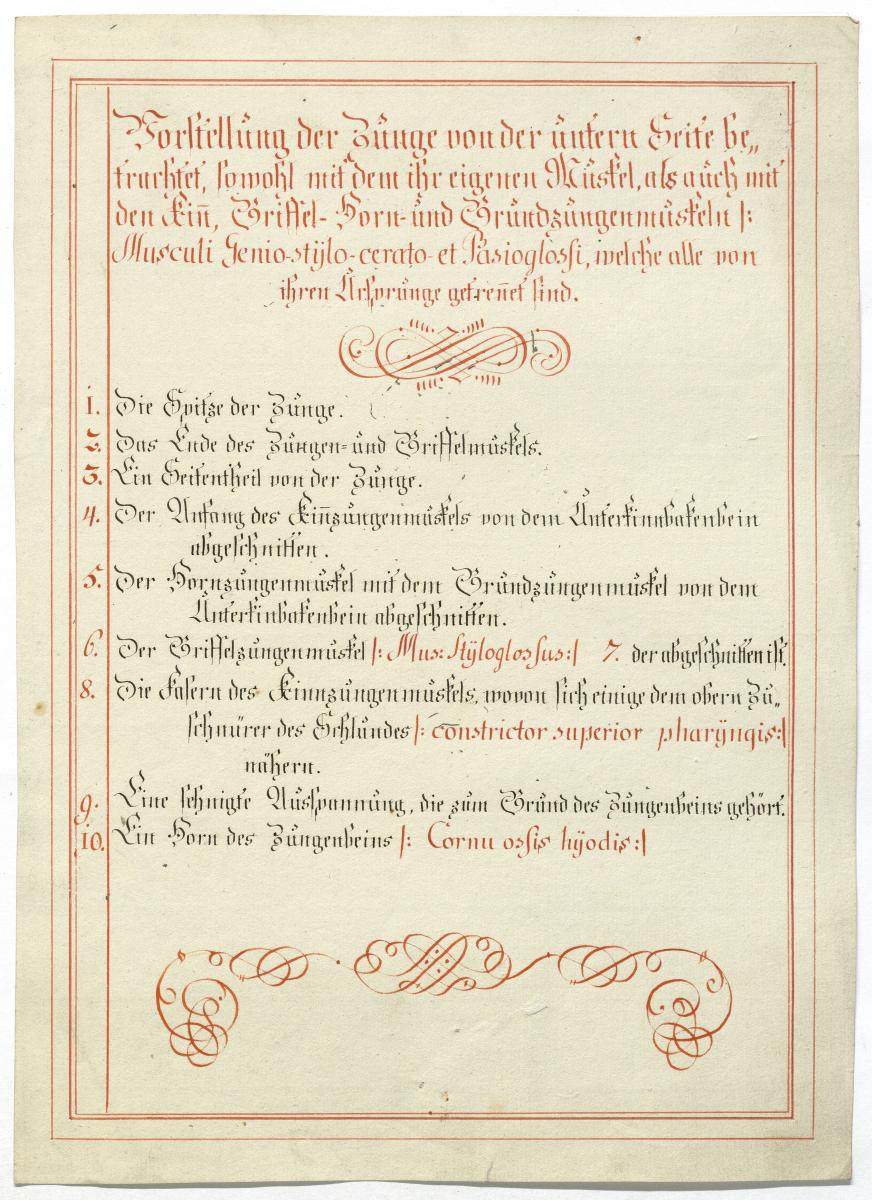 Vorstellung der Zunge von der untern Seite be„
trachtet, sowohl mit dem ihr eigenen Muskel, als auch mit
den Kiñ, Griffel- Horn- und Grundzungenmuskeln |:
Musculi Genio-stÿlo-cerato- et Basioglossi, welche alle von
ihren Ursprunge getreñet sind.
1. Die Spitze der Zunge.
2. Das Ende des Zungen- und Griffelmuskels.
3. Ein Seitentheil von der Zunge.
4. Der Anfang des Kiñzungenmuskels von dem Unterkinnbakenbein
abgeschnitten.
5. Der Hornzungenmuskel mit dem Grundzungenmuskel von dem
Unterkinbakenbein abgeschnitten.
6. Der Griffelzungenmuskel |: Mus: Stÿloglossus:| 7. der abgeschnitten ist.
8. Die Fasern des Kinnzungenmuskels, wovon sich einige dem obern Zu„
schnürer des Schlundes |: constrictor superior pharÿngis:|
nähern.
9. Eine sehnigte Ausspannung, die zum Grund des Zungenbeins gehört.
10. Ein Horn des Zungenbeins |: Cornu ossis hÿodis:|